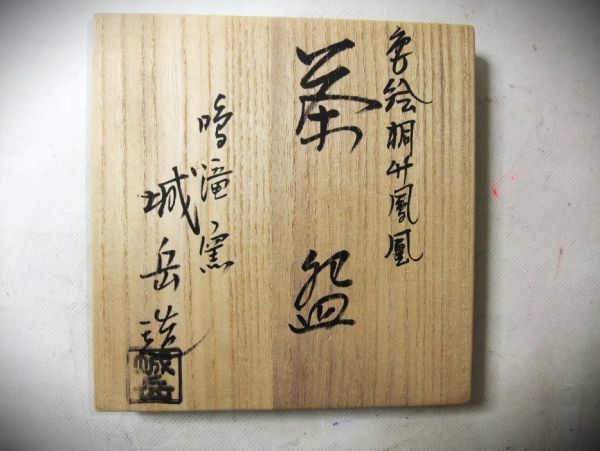 色絵桐竹鳳凰
茶盌
鳴滝窯
城岳造
城岳